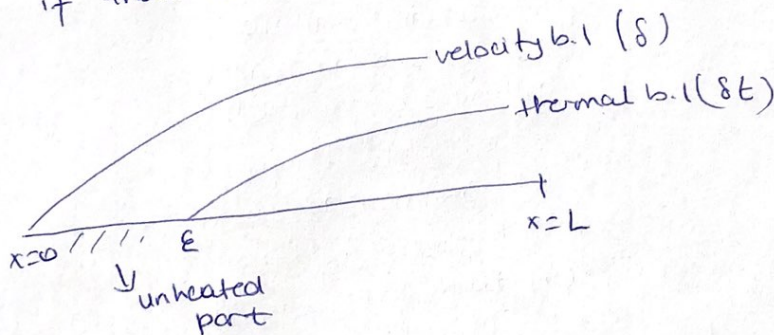 velocity b.l (δ)
thermal b.l (δt)
x=0
ε
x=L
unheated
part